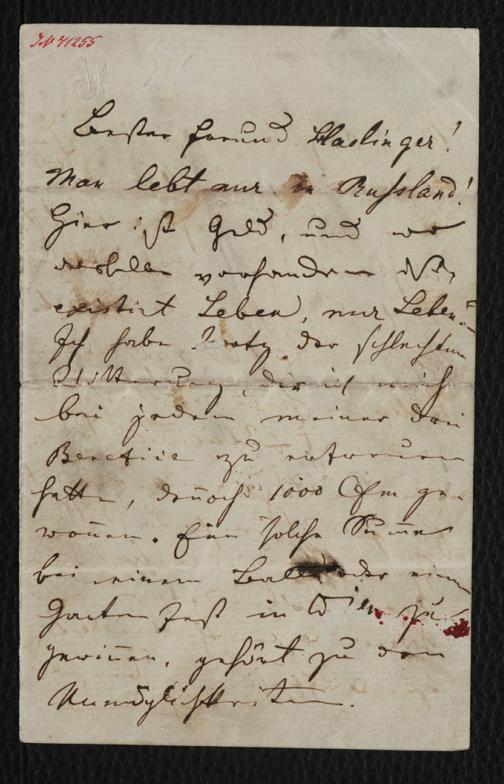 IN 71255
Bester Freund Haslinger!
Man lebt nur in Russland!
Hier ist Geld, und wo
dasselbe vorhanden ist,
existirt Leben, nur Leben!
Ich habe trotz der schlechten
Witterung, der ich mich
bei jedem meiner drei
Benefice zu erfreuen
hatte, dennoch 1000 gewonnen.
Eine solche Summe
bei einem Balle oder einem
Gartenfest in Wien zu
gewinnen, gehört zu den
Unmöglichkeiten.